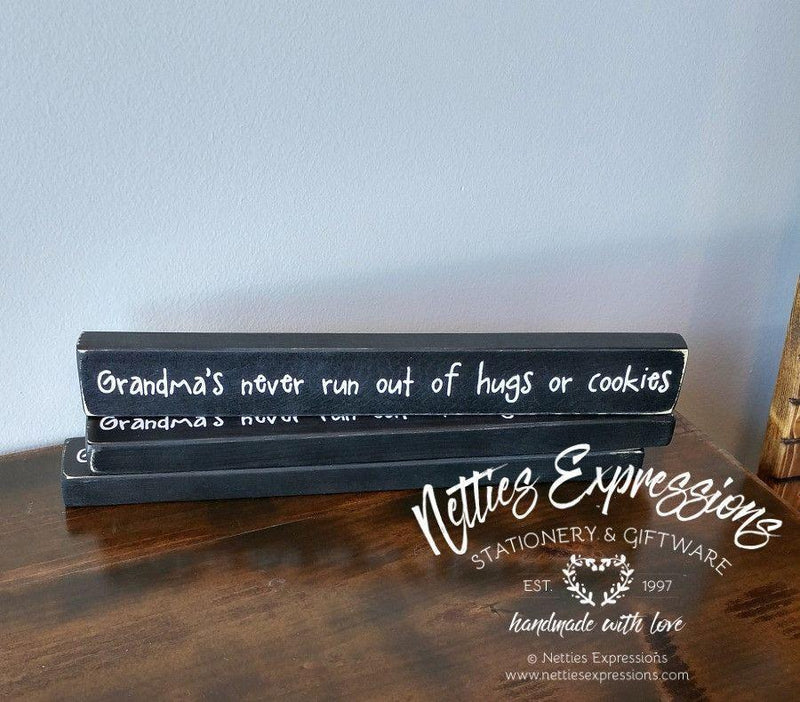 Grandma's never run out of hugs or cookies
Grandma's never run
G
Netties Expressions
STATIONERY & GIFTWARE
EST. 1997
handmade with love
© Netties Expressions
www.nettiesexpressions.com